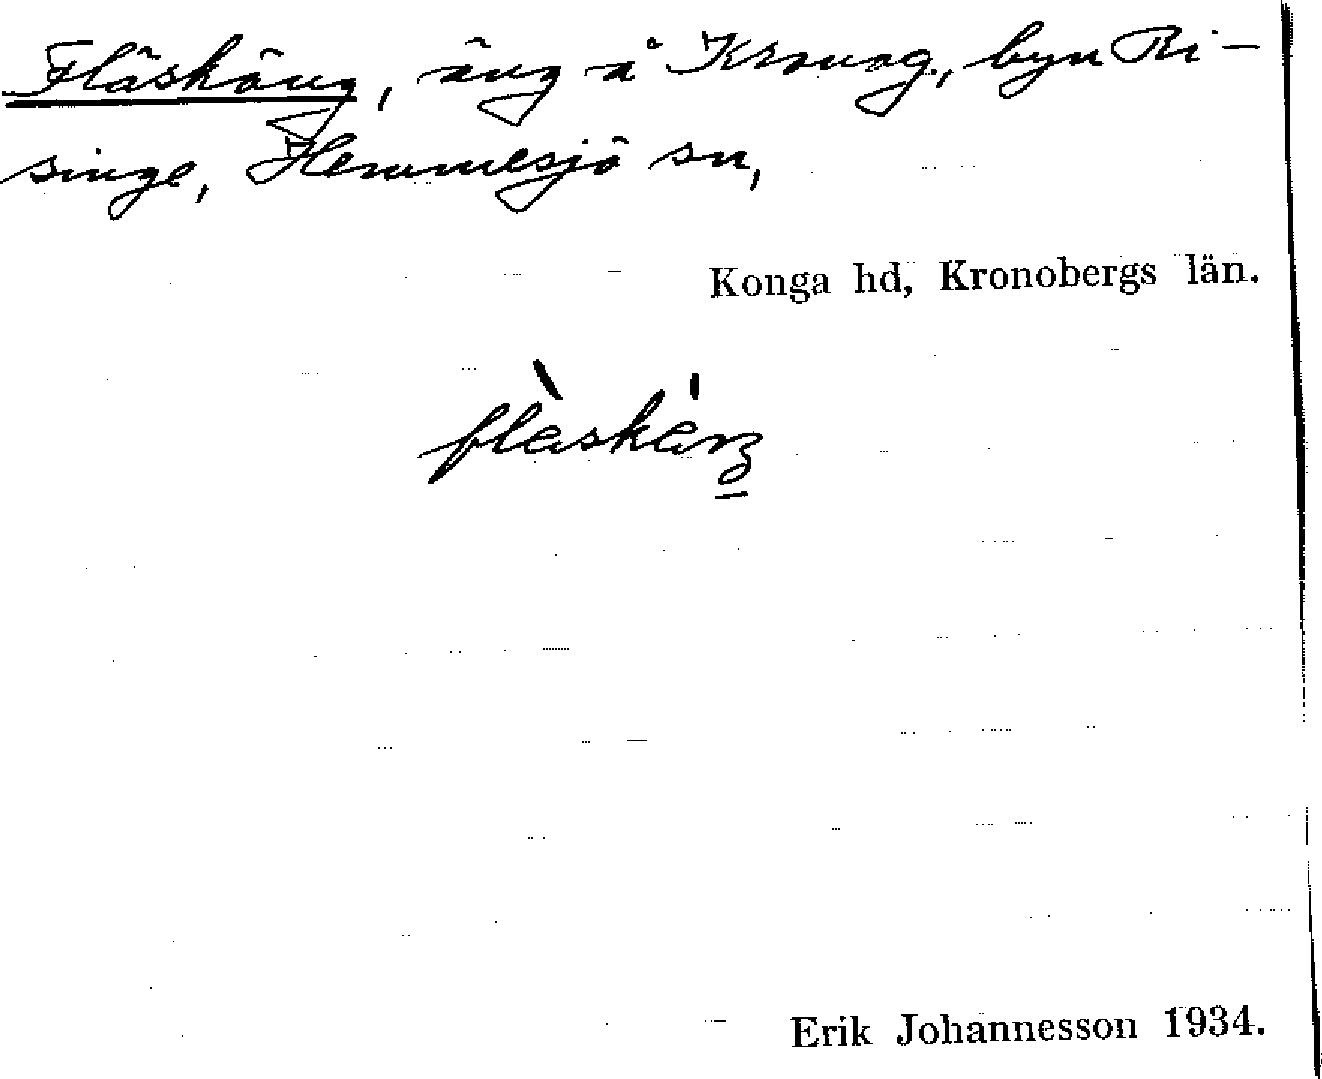 Fläskäng, äng å Kronog., byn Ri-
singe, Hemmesjö sn,
Konga hd, Kronobergs län.
Erik Johannesson 1934.